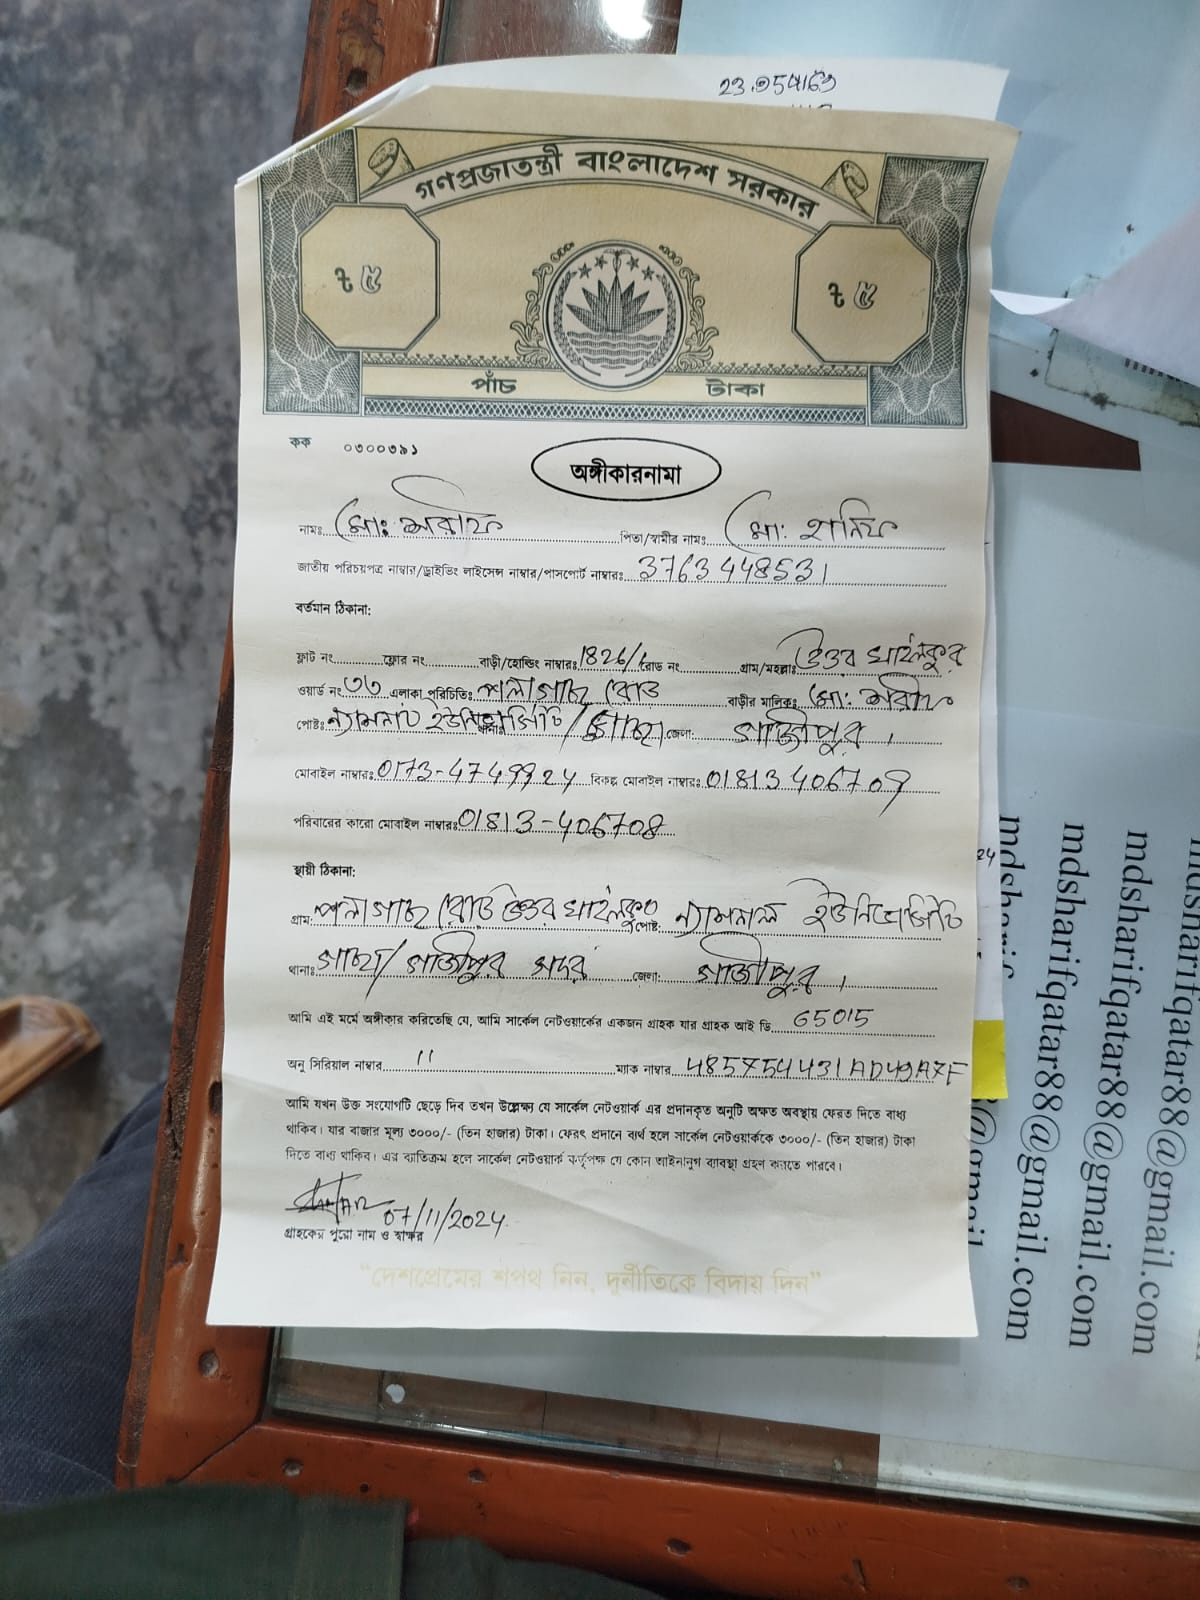 23.
গণপ্রজাতন্ত্রী বাংলাদেশ সরকার
৳ ৫ ৳ ৫
পাঁচ টাকা
কক ০৩০০৩৯১
অঙ্গীকারনামা
নামঃ মো: শরীফ পিতা/স্বামীর নামঃ মো: হানিফ
জাতীয় পরিচয়পত্র নাম্বার/ড্রাইভিং লাইসেন্স নাম্বার/পাসপোর্ট নাম্বারঃ 3763448531
বর্তমান ঠিকানা:
ফ্লাট নং ফ্লোর নং বাড়ী/হোল্ডিং নাম্বারঃ 1826/1 রোড নং গ্রাম/মহল্লাঃ উত্তর খাইলকুর
ওয়ার্ড নং ৩৬ এলাকা পরিচিতিঃ পলাগাছ রোড বাড়ীর মালিকঃ মো: শরীফ
পোষ্টঃ ন্যাশনাল ইউনিভার্সিটি / গাছা জেলা: গাজীপুর।
মোবাইল নাম্বারঃ 0173-4749924 বিকল্প মোবাইল নাম্বারঃ 01813406709
পরিবারের কারো মোবাইল নাম্বারঃ 01813-406708
স্থায়ী ঠিকানা:
গ্রাম: পলাগাছ রোড উত্তর খাইলকুর পোষ্ট: ন্যাশনাল ইউনিভার্সিটি
থানাঃ গাছা/গাজীপুর সদর জেলা: গাজীপুর।
আমি এই মর্মে অঙ্গীকার করিতেছি যে, আমি সার্কেল নেটওয়ার্কের একজন গ্রাহক যার গ্রাহক আই ডি 65015
অনু সিরিয়াল নাম্বার 11 ম্যাক নাম্বার 485754431AD49A7F
আমি যখন উক্ত সংযোগটি ছেড়ে দিব তখন উল্লেক্ষ্য যে সার্কেল নেটওয়ার্ক এর প্রদানকৃত অনুটি অক্ষত অবস্থায় ফেরত দিতে বাধ্য
থাকিব। যার বাজার মূল্য ৩০০০/- (তিন হাজার) টাকা। ফেরৎ প্রদানে ব্যর্থ হলে সার্কেল নেটওয়ার্ককে ৩০০০/- (তিন হাজার) টাকা
দিতে বাধ্য থাকিব। এর ব্যতিক্রম হলে সার্কেল নেটওয়ার্ক কর্তৃপক্ষ যে কোন আইনানুগ ব্যবস্থা গ্রহণ করতে পারবে।
07/11/2024
গ্রাহকের পুরো নাম ও স্বাক্ষর
“দেশপ্রেমের শপথ নিন, দুর্নীতিকে বিদায় দিন”
24
mdsharif
@gmail
mdsharifqatar88@gmail.com
mdsharifqatar88@gmail.com
mdsharifqatar88